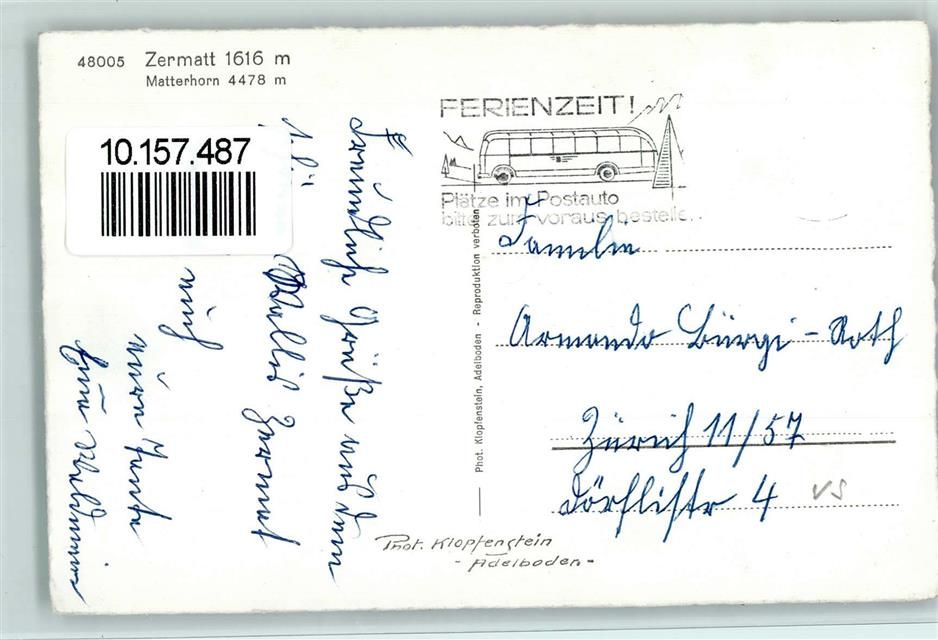 48005 Zermatt 1616 m
Matterhorn 4478 m
10.157.487
FERIENZEIT!
Plätze im Postauto
bitte zum voraus bestelle
Freundliche Grüße aus dem
Wallis Zermatt
Familie
Armando Bürgi-Roth
Zürich 11/57
Dörflistr 4
VS
Phot. Klopfenstein, Adelboden - Reproduktion verboten
Phot. Klopfenstein
- Adelboden -